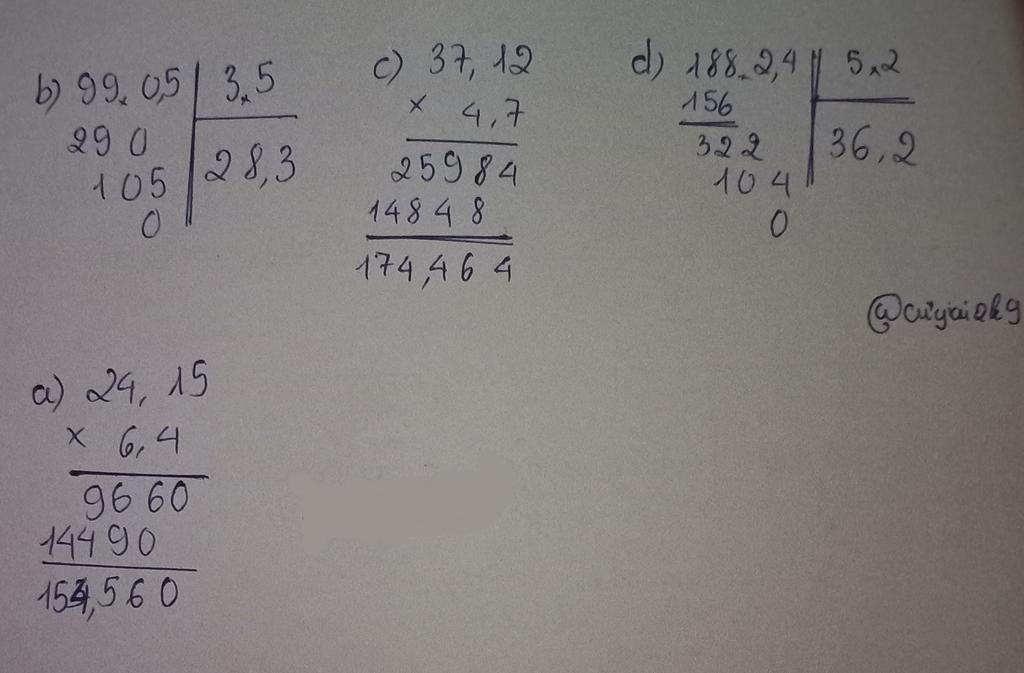 b) 99,0,5 | 3,5
290 | 28,3
105
0
c) 37,12
× 4,7
25984
14848
174,464
d) 188,2,4 | 5,2
156 | 36,2
322
104
0
a) 24,15
× 6,4
9660
14490
154,560